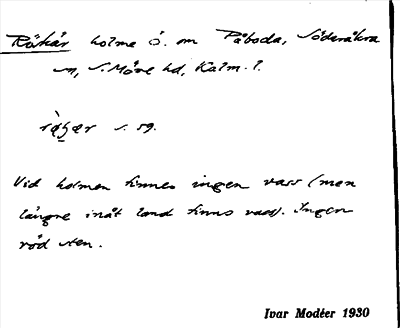 Rökär holme Ö. om Påboda, Söderåkra
sn, S. Möre hd, Kalm. l.
s. 59.
Vid holmen finnes ingen vass (men
längre inåt land finns vass). Ingen
röd sten.
Ivar Modéer 1930